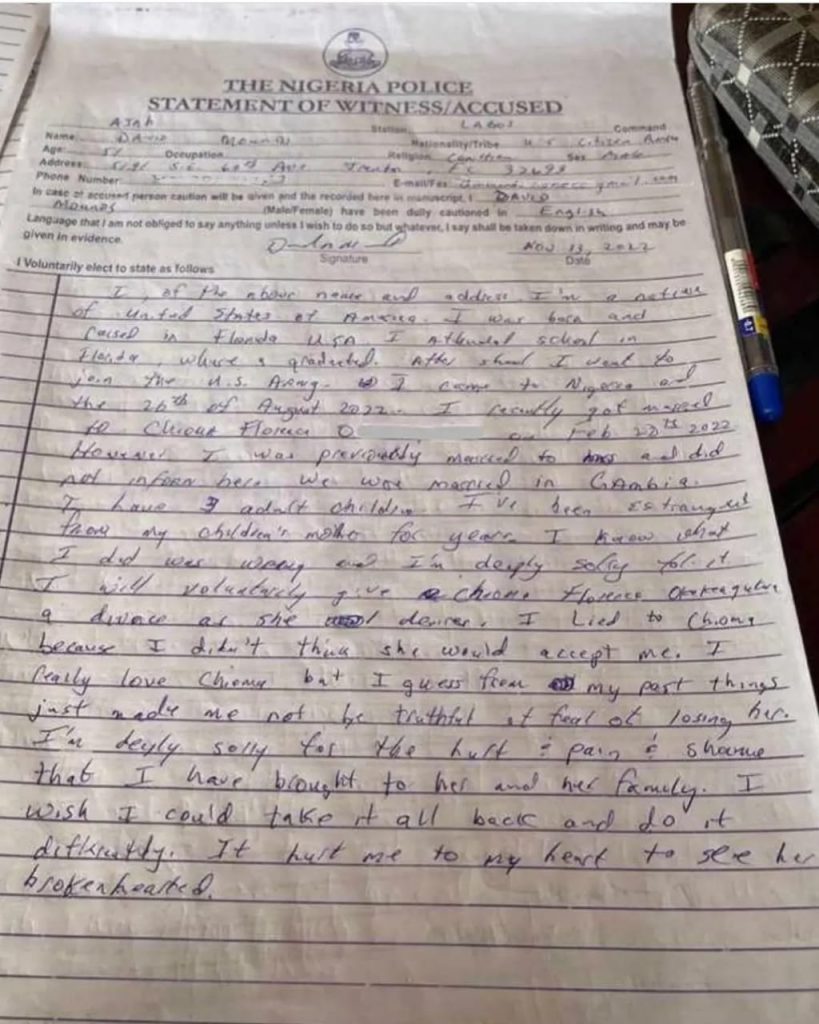 THE NIGERIA POLICE
STATEMENT OF WITNESS/ACCUSED
AJAH Station LAGOS Command
Name DAVID Nationality/Tribe U.S Citizen
Age 51 Occupation Religion Sex
Address Ave Trenton, 32693
Phone Number E-mail/Fax gmail.com
In case of accused person caution will be given and the recorded here in manuscript, I DAVID
(Male/Female) have been dully cautioned in English
Language that I am not obliged to say anything unless I wish to do so but whatever, I say shall be taken down in writing and may be
given in evidence.
Nov 13, 2022
Signature Date
I Voluntarily elect to state as follows
I, of the above name and address. I'm a native
of United States of America. I was born and
raised in Florida USA. I attended school in
Florida, where I graduated. After school I went to
join the U.S. Army. I came to Nigeria and
the 26th of August 2022. I recently got married
to Florence O on Feb 2022
However I was previously married to and did
not inform her. We were married in Gambia.
I have 3 adult children. I've been estranged
from my children's mother for years. I know what
I did was wrong and I'm deeply solly for it
I will voluntarily give Chioma Florence
a divorce as she desires. I Lied to Chioma
because I didn't think she would accept me. I
really love Chioma but I guess from my past things
just made me not be truthful at feal of losing her.
I'm deeply solly for the hurt & pain & shame
that I have brought to her and her family. I
wish I could take it all back and do it
differently. It hurt me to my heart to see her
brokenhearted.